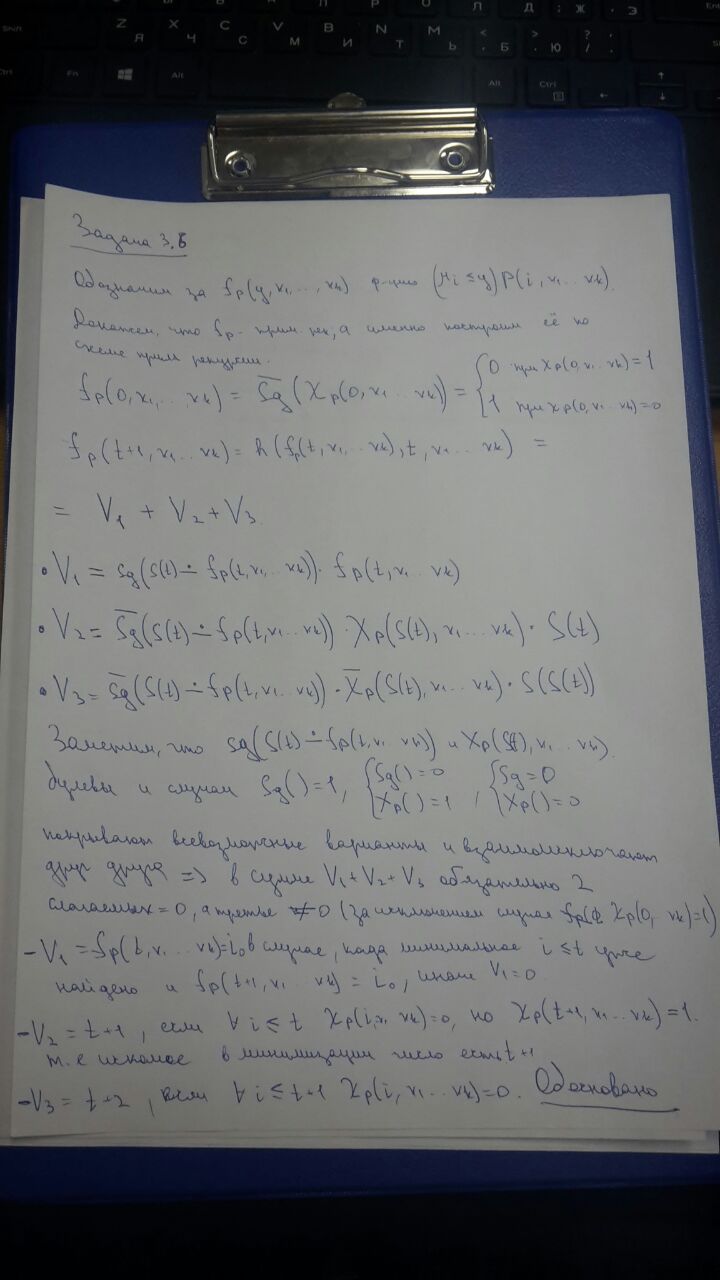 Z Я
X Ч
C С
V М
B И
N Т
M Ь
< , Б
> . Ю
? / .
Ctrl
Fn
Alt
Alt
Ctrl
Задача 3.6
Обозначим за f_P(y, x₁, ..., x_k) ф-цию (μi ≤ y) P(i, x₁ ... x_k).
Докажем, что f_P - прим. рек, а именно построим её по
схеме прим рекурсии.
f_P(0, x₁, ..., x_k) = s̅g̅(χ_P(0, x₁ ... x_k)) = { 0 при χ_P(0, x₁ ... x_k) = 1
1 при χ_P(0, x₁ ... x_k) = 0
f_P(t+1, x₁ ... x_k) = h(f_P(t, x₁ ... x_k), t, x₁ ... x_k) =
= V₁ + V₂ + V₃
• V₁ = sg(S(t) ∸ f_P(t, x₁, ... x_k)) · f_P(t, x₁ ... x_k)
• V₂ = s̅g̅(S(t) ∸ f_P(t, x₁ ... x_k)) · χ_P(S(t), x₁ ... x_k) · S(t)
• V₃ = s̅g̅(S(t) ∸ f_P(t, x₁ ... x_k)) · χ̅_P(S(t), x₁ ... x_k) · S(S(t))
Заметим, что sg(S(t) ∸ f_P(t, x₁ ... x_k)) и χ_P(S(t), x₁ ... x_k)
булевы и случаи Sg() = 1, { Sg() = 0 χ_P() = 1 , { Sg = 0 χ_P() = 0
покрывают всевозможные варианты и взаимоисключают
друг друга => в сумме V₁ + V₂ + V₃ обязательно 2
слагаемых = 0, а третье ≠ 0 (за исключением случая χ_P(0, ... x_k) = 1)
- V₁ = f_P(t, x₁ ... x_k) = i₀ в случае, когда минимальное i ≤ t уже
найдено и f_P(t+1, x₁ ... x_k) = i₀, иначе V₁ = 0
- V₂ = t+1, если ∀ i ≤ t χ_P(i, x₁ x_k) = 0, но χ_P(t+1, x₁ ... x_k) = 1.
т.е искомое в минимизации число есть t+1
- V₃ = t+2, если ∀ i ≤ t+1 χ_P(i, x₁ ... x_k) = 0. Обосновано